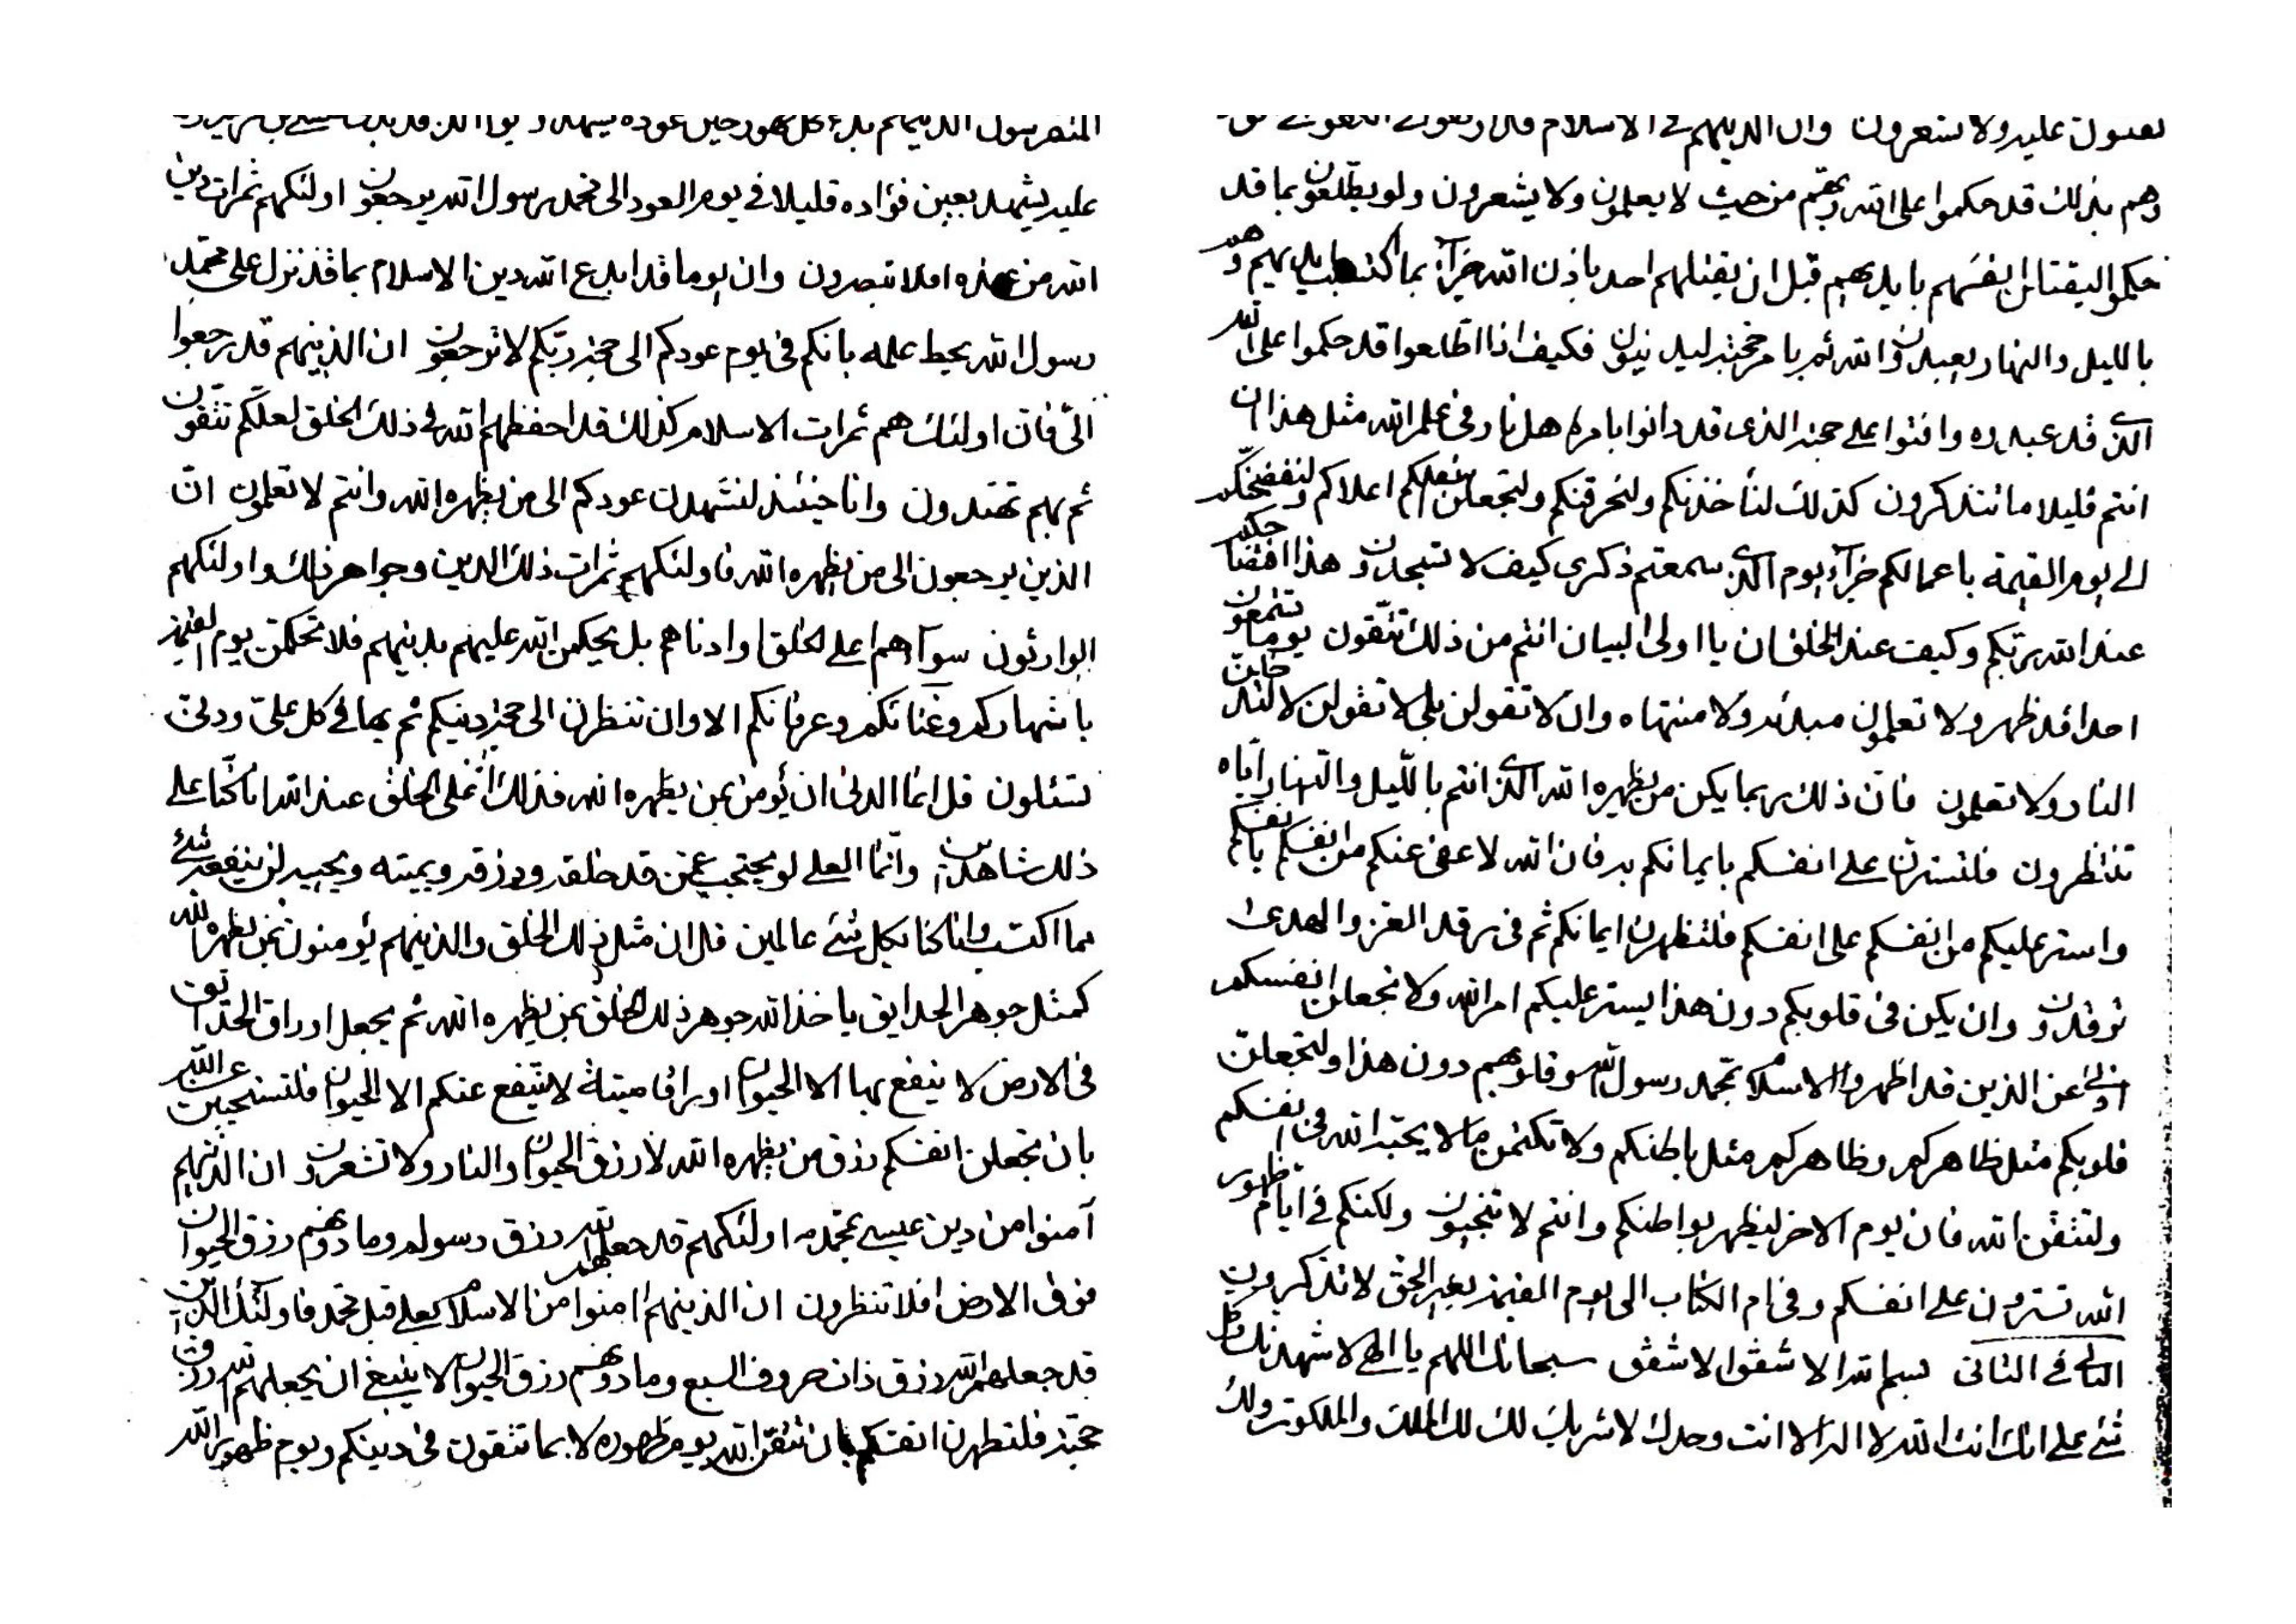 وهم بذلك قد حكموا على الله ربهم من حيث لا يعلمون ولا يشعرون ولو يطلعون بما قد
حكموا ليقتلن انفسهم بايديهم قبل ان يقتلهم احد باذن الله جزآء بما اكتسبت ايديهم وهم
بالليل والنهار يعبدون الله ثم بامر حجته ليدينون فكيف اذا اطلعوا قد حكموا على الله
الذي قد عبدوه وافتوا على حجته الذي قد دانوا بامره هل نار في علم الله مثل هذا ان
انتم قليلا ما تتذكرون كذلك لنأخذنكم ولنحرقنكم ولنجعلن اسفلكم اعلاكم ولنفضحنكم
الى يوم القيمة باعمالكم جزآء يوم الذي سمعتم ذكرى كيف لا تسجدون وهذا افتضاحكم
عند الله ربكم وكيف عند الخلق ان يا اولى البيان انتم من ذلك تتقون يوما تسمعون
احدا قد ظهر ولا تعلمون مبدئه ولا منتهاه وان لا تقولن بلى لا تقولن لا لتدخلن
النار ولا تعلمون فان ذلك ربما يكن من يظهره الله الذي انتم بالليل والنهار اياه
تنتظرون فلتسترن على انفسكم بايمانكم به فان الله لا عفى عنكم من انفسكم بانفسكم
واستر عليكم من انفسكم على انفسكم فلتظهرن ايمانكم ثم في مرقد العز والهدى
ترقدون وان يكن في قلوبكم دون هذا يستر عليكم امر الله ولا تجعلن انفسكم
ادنى عن الذين قد اظهروا الاسلام بمحمد رسول الله وقلوبهم دون هذا ولتجعلن
قلوبكم مثل ظاهركم وظاهركم مثل باطنكم ولا تكتمن ما لا يحبه الله في انفسكم
ولتتقن الله فان يوم الاخر ليظهر بواطنكم وانتم لا تحبون ولكنكم في ايام ظهور
الله تسترون على انفسكم وفي ام الكتاب الى يوم القيمة بغير الحق لا تذكرون
الثاني في الثاني بسم الله الاشفق الاشفق سبحانك اللهم يا الهي لاشهدنك وكل
شئ على انك انت الله لا اله الا انت وحدك لا شريك لك لك الملك والملكوت ولك
عليه يشهد بعين فؤاده قليلا في يوم العود الى محمد رسول الله يرجعون اولئك هم ثمرات دين
الله من عنده افلا تبصرون وان يوما قد ابدع الله دين الاسلام بما قد نزل على محمد
رسول الله يحط علمه بانكم في يوم عودكم الى حجة ربكم لا ترجعون ان الذينهم قد رجعوا
الي فان اولئك هم ثمرات الاسلام كذلك قد احفظهم الله في ذلك الخلق لعلكم تتقون
ثم بهم تهتدون وانا حينئذ لنشهدن عودكم الى من يظهره الله وانتم لا تعلمون ان
الذين يرجعون الى من يظهره الله فاولئك هم ثمرات ذلك الدين وجواهر ذلك واولئك هم
الوارثون سوآء هم اعلى الخلق او ادناهم بل يحكمن الله عليهم بدينهم فلا تحكمن يوم القيمة
باشهاركم وغنائكم وعرفانكم الا وان تنظرن الى حجة دينكم ثم بها في كل على ودنى
تسئلون قل انما الدنى ان يؤمن بمن يظهره الله فذلك اعلى الخلق عند الله انا كنا على
ذلك شاهدين وانما العلى لو يحتجب عمن قد خلقه ورزقه ويميته ويحييه لن ينفعه شئ
مما اكتسب وانا كنا بكل شئ عالمين قل ان مثل ذلك الخلق والذينهم يؤمنون بمن يظهره الله
كمثل جوهر الحدايق ياخذ الله جوهر ذلك الخلق بمن يظهره الله ثم يجعل اوراق الحدائق
في الارض لا ينفع بها الا الحيوان اوراقا ميتة لا ينتفع عنكم الا الحيوان فلتستحيين عن الله
بان تجعلن انفسكم رزق من يظهره الله لا رزق الحيوان والنار ولا تشعرون ان الذينهم
آمنوا من دين عيسى بمحمد اولئك هم قد جعلهم الله رزق رسوله وما دونهم رزق الحيوان
فوق الارض افلا تنظرون ان الذينهم امنوا من الاسلام بعلى قبل محمد فاولئك الذين
قد جعلهم الله رزق ذات حروف السبع وما دونهم رزق الحيوان لا ينبغي ان يجعلهم الله رزق
حجته فلتطهرن انفسكم بان تتقن الله يوم ظهوره لا بما تتقون في دينكم ويوم ظهور الله